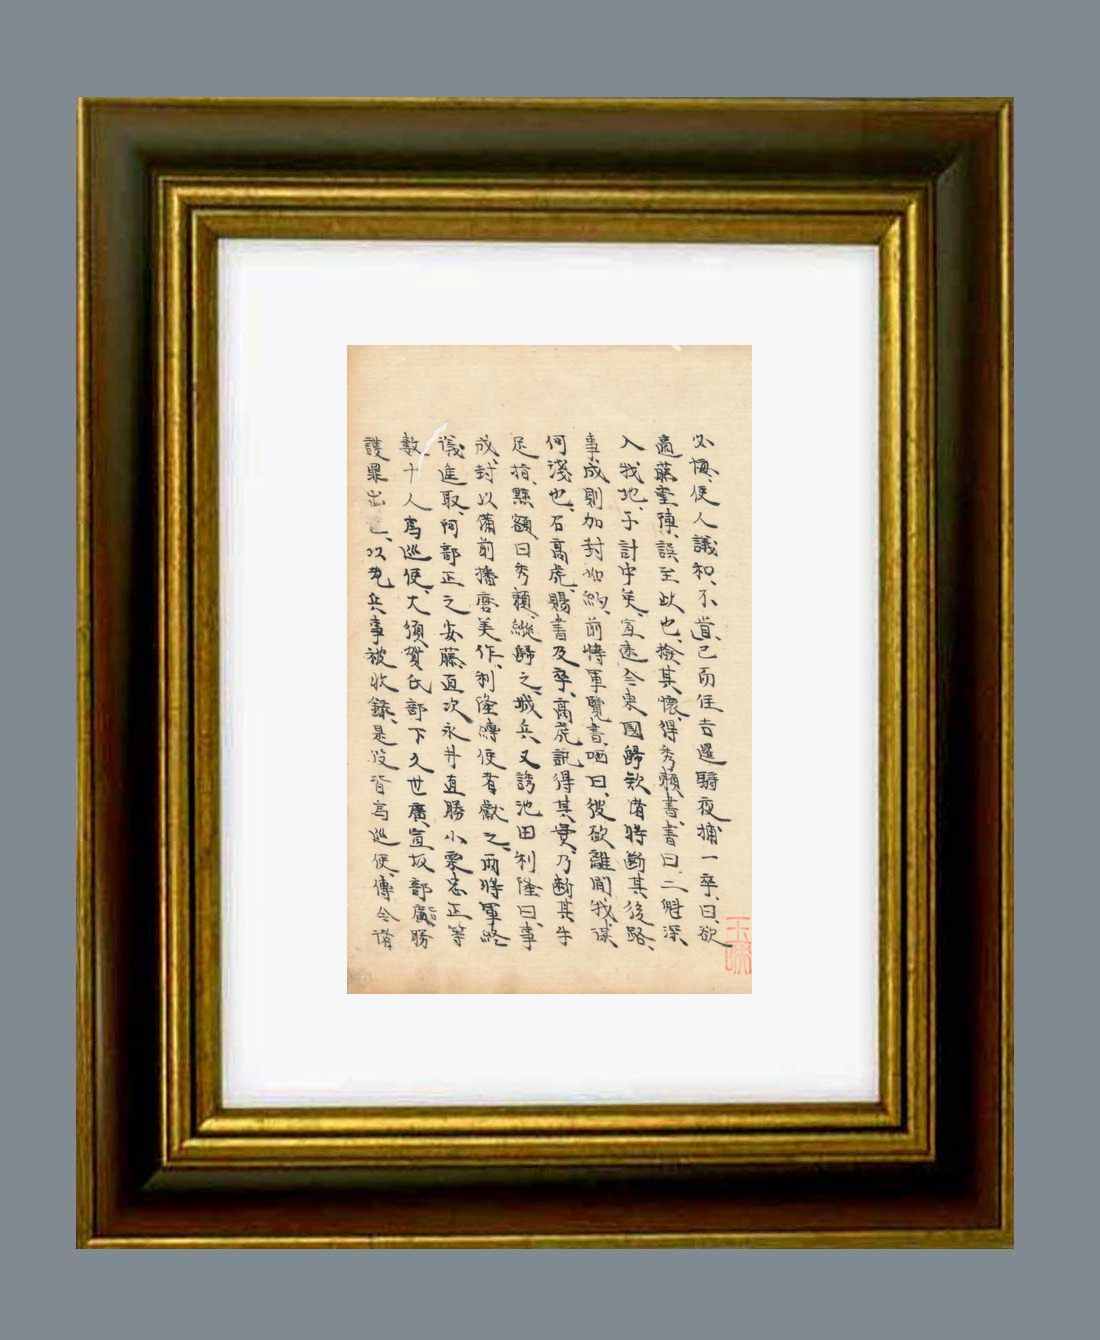 必懼、使人議和、不道、已而住吉邏騎夜捕一卒、曰、欲
適藤堂陣、誤至此也、撿其懷、得秀賴書、書曰、二魁深
入我地、予計中矣、宜速令東國歸欵者、時斷其後路、
事成則加封如約、前將軍覽書、哂曰、彼欲離間我、謀
何淺也、召高虎、賜書及卒、高虎訊得其實、乃斷其手
足指、黥額曰秀賴、縱歸之城兵、又誘池田利隆曰、事
成、封以備前播磨美作、利隆縛使者獻之、兩將軍終
議進取、阿部正之安藤直次永井直勝小栗忠正等
數十人爲巡使、大須賀氏部下久世廣宣坂部廣勝
護罪出、以老兵事被收錄、是役皆爲巡使、傳令諸